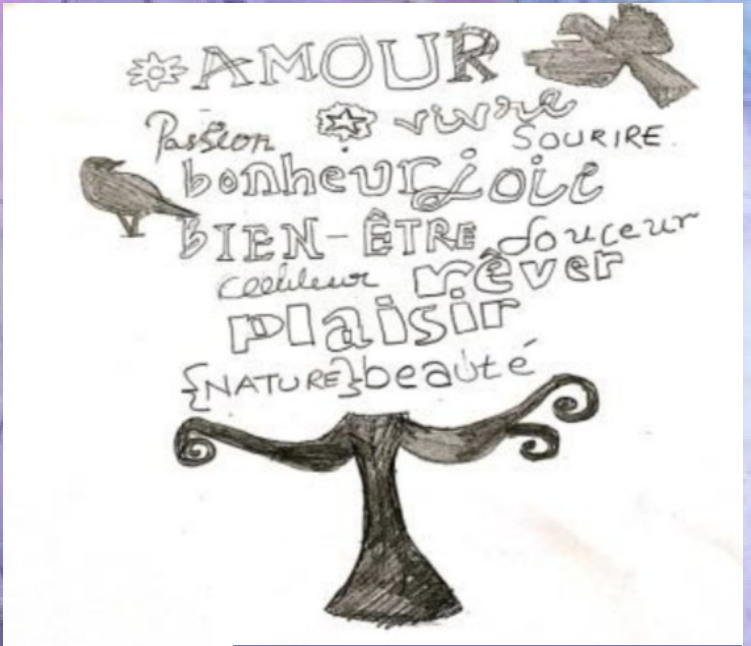 AMOUR
Passion vivre
SOURIRE.
bonheur joie
BIEN-ÊTRE douceur
couleur rêver
plaisir
{NATURE} beauté